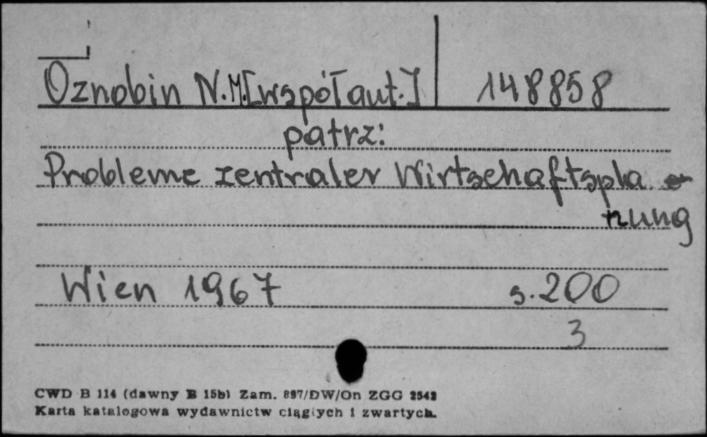 Oznobin N.M. [współaut.] 148858
patrz:
Probleme zentraler Wirtschaftspla
nung
Wien 1967 s. 200
3
CWD B 114 (dawny B 15b) Zam. 897/DW/On ZGG 2542
Karta katalogowa wydawnictw ciągłych i zwartych.